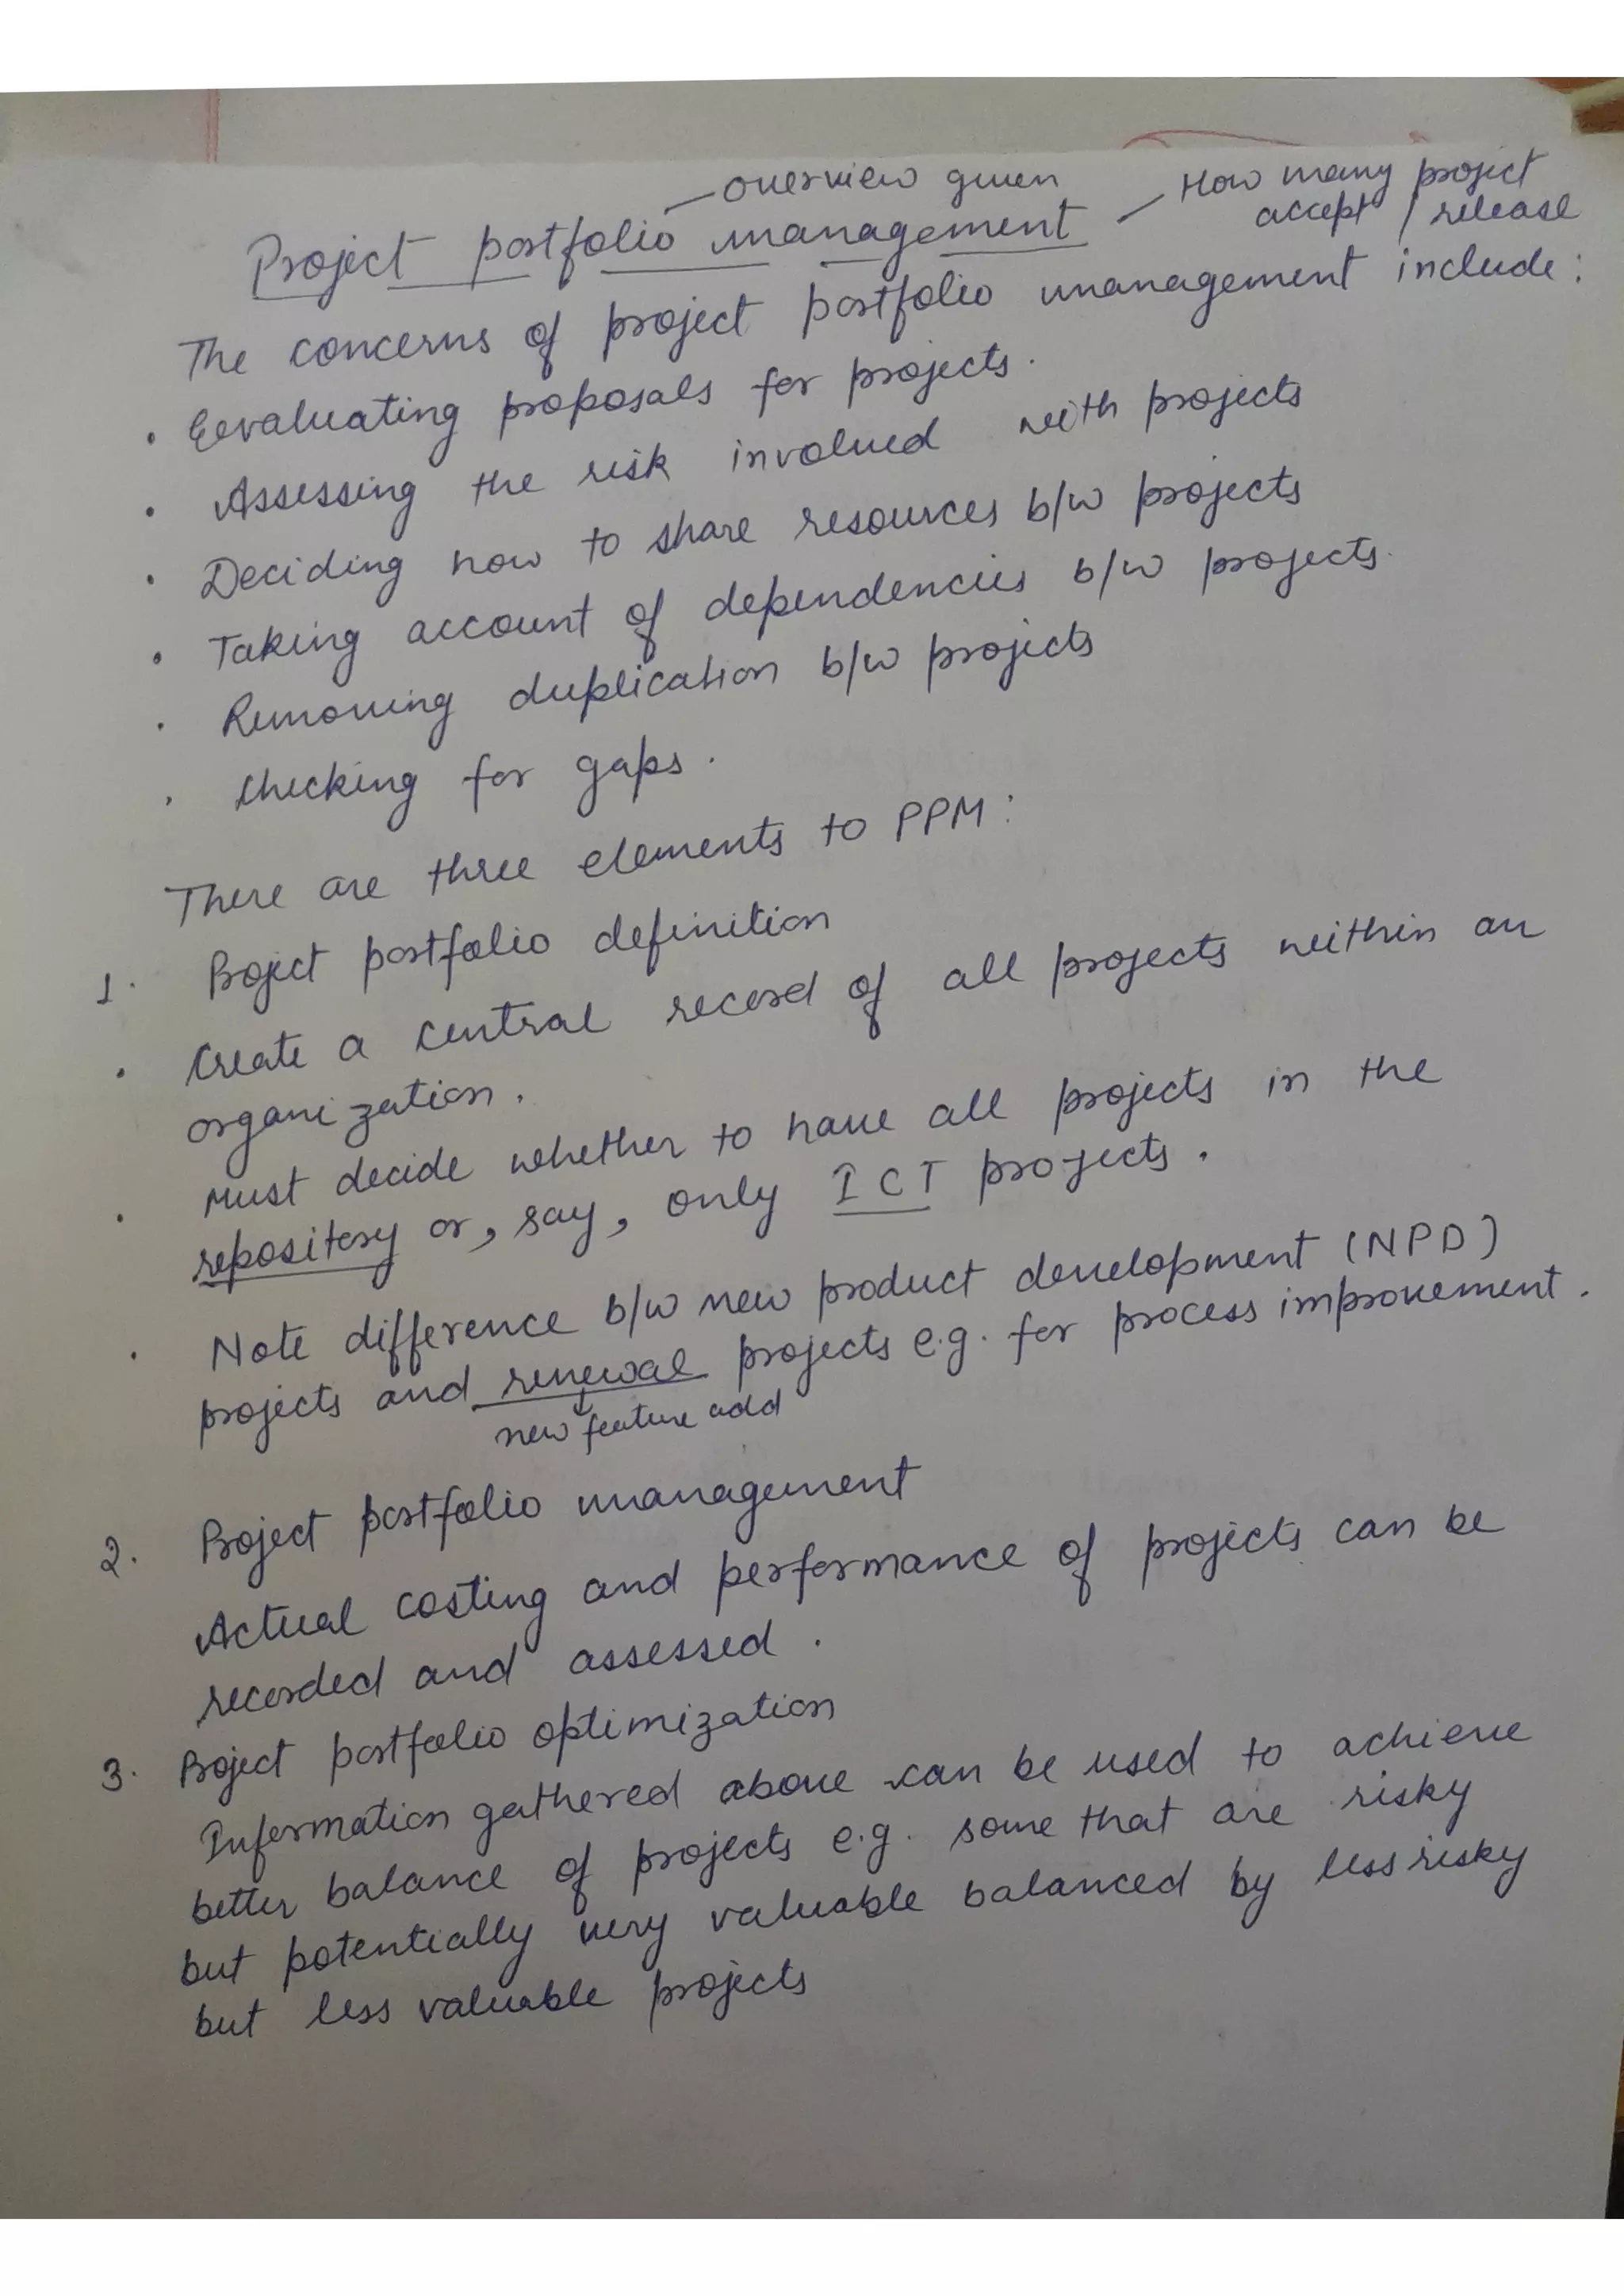 overview given
How many project
accept / release
Project portfolio management
The concerns of project portfolio management include:
• Eevaluating proposals for projects.
• Assessing the risk involved with projects
• Deciding how to share resources b/w projects
• Taking account of dependencies b/w projects.
• Removing duplication b/w projects
• Checking for gaps.
There are three elements to PPM:
1. Project portfolio definition
• Create a central record of all projects within an
organization.
• Must decide whether to have all projects in the
repository or, say, only ICT projects.
• Note difference b/w new product development (NPD)
projects and renewal projects e.g. for process improvement.
new feature add
2. Project portfolio management
Actual costing and performance of projects can be
recorded and assessed.
3. Project portfolio optimization
Information gathered above can be used to achieve
better balance of projects e.g. some that are risky
but potentially very valuable balanced by less risky
but less valuable projects